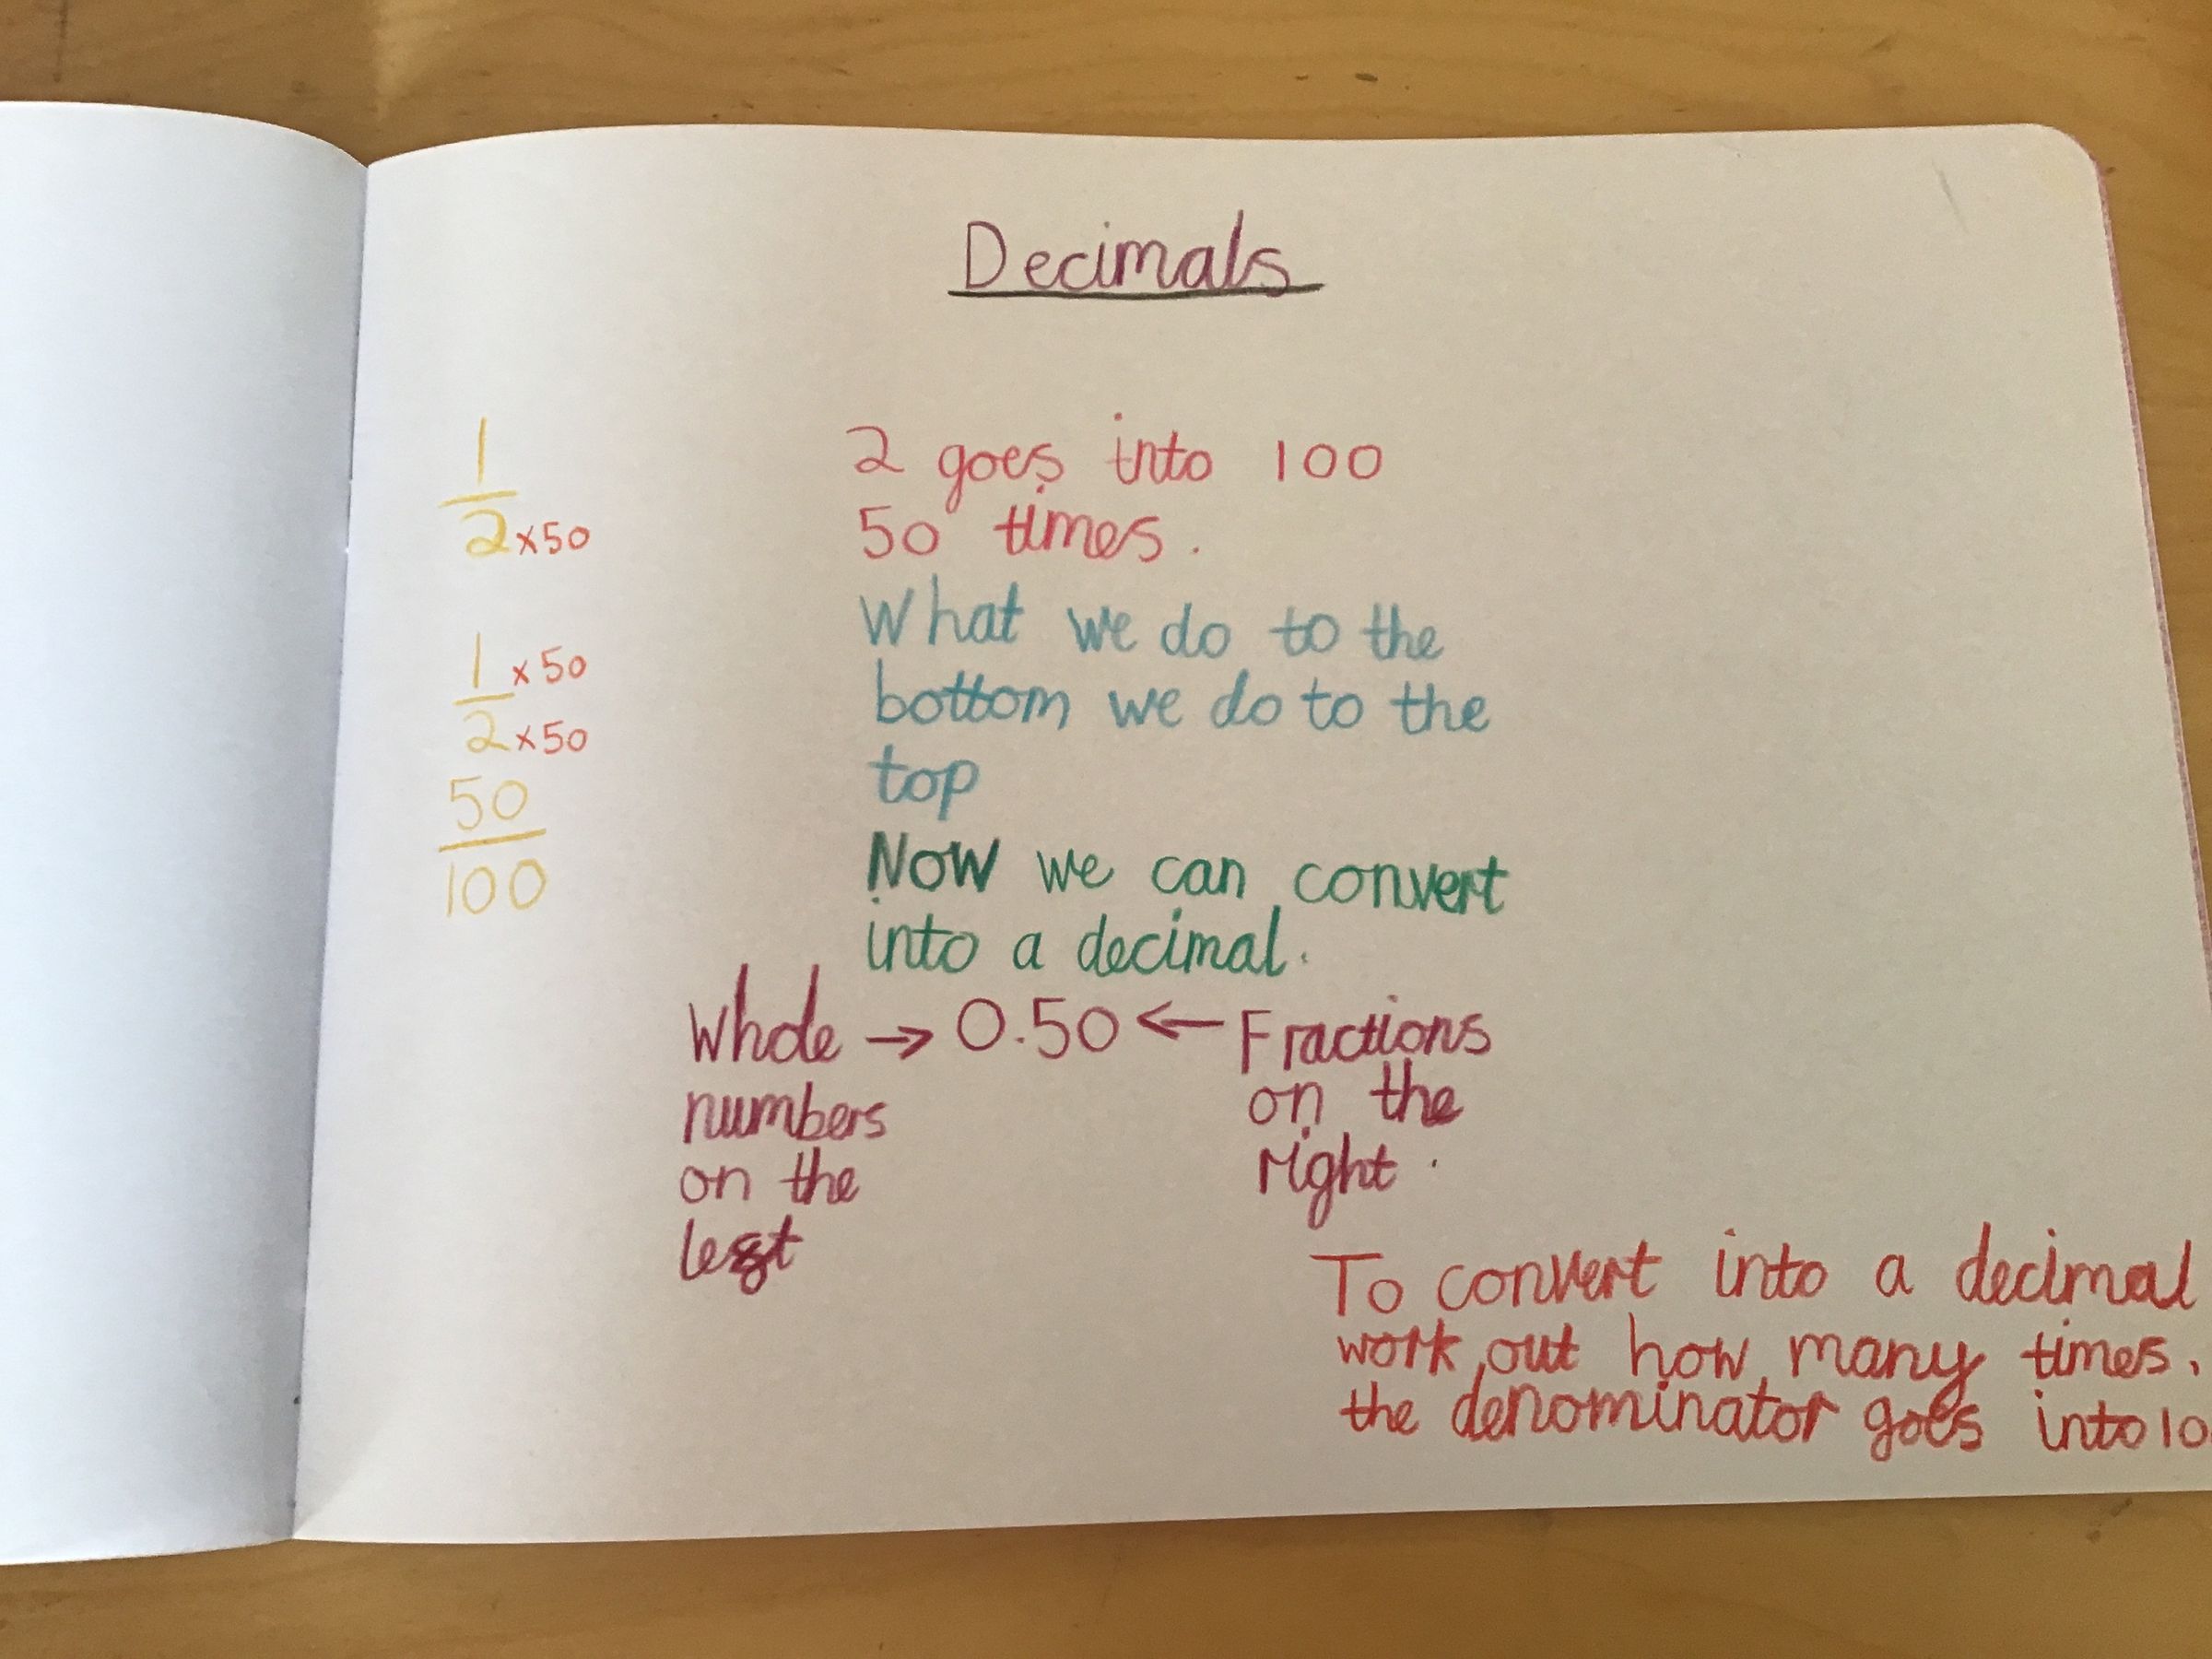 Decimals
1
2 x50
2 goes into 100
50 times.
1 x 50
2 x50
What we do to the
bottom we do to the
top
50
100
Now we can convert
into a decimal.
Whole → 0.50 ← Fractions
numbers
on the
left
on the
right.
To convert into a decimal
work out how many times
the denominator goes into 10